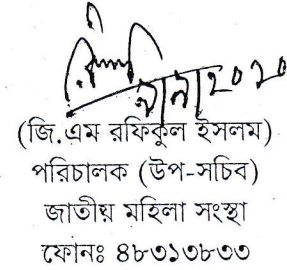 (জি.এম রফিকুল ইসলাম)
পরিচালক (উপ-সচিব)
জাতীয় মহিলা সংস্থা
ফোনঃ ৪৮৩১৩৮৩৩